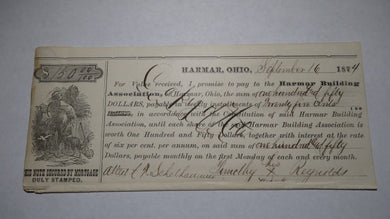 $150 00/100
HARMAR, OHIO, September 16 1874
For Value received, I promise to pay to the Harmar Building
Association, of Harmar, Ohio, the sum of one hundred & fifty
DOLLARS, payable in weekly installments of Twenty five Cents
in accordance with the Constitution of said Harmar Building
Association, until each share of said Harmar Building Association is
worth One Hundred and Fifty Dollars, together with interest at the rate
of six per cent. per annum, on said sum of one hundred & fifty
Dollars, payable monthly on the first Monday of each and every month.
THIS NOTE SECURED BY MORTGAGE
DULY STAMPED.
Attest Timothy X Reynolds